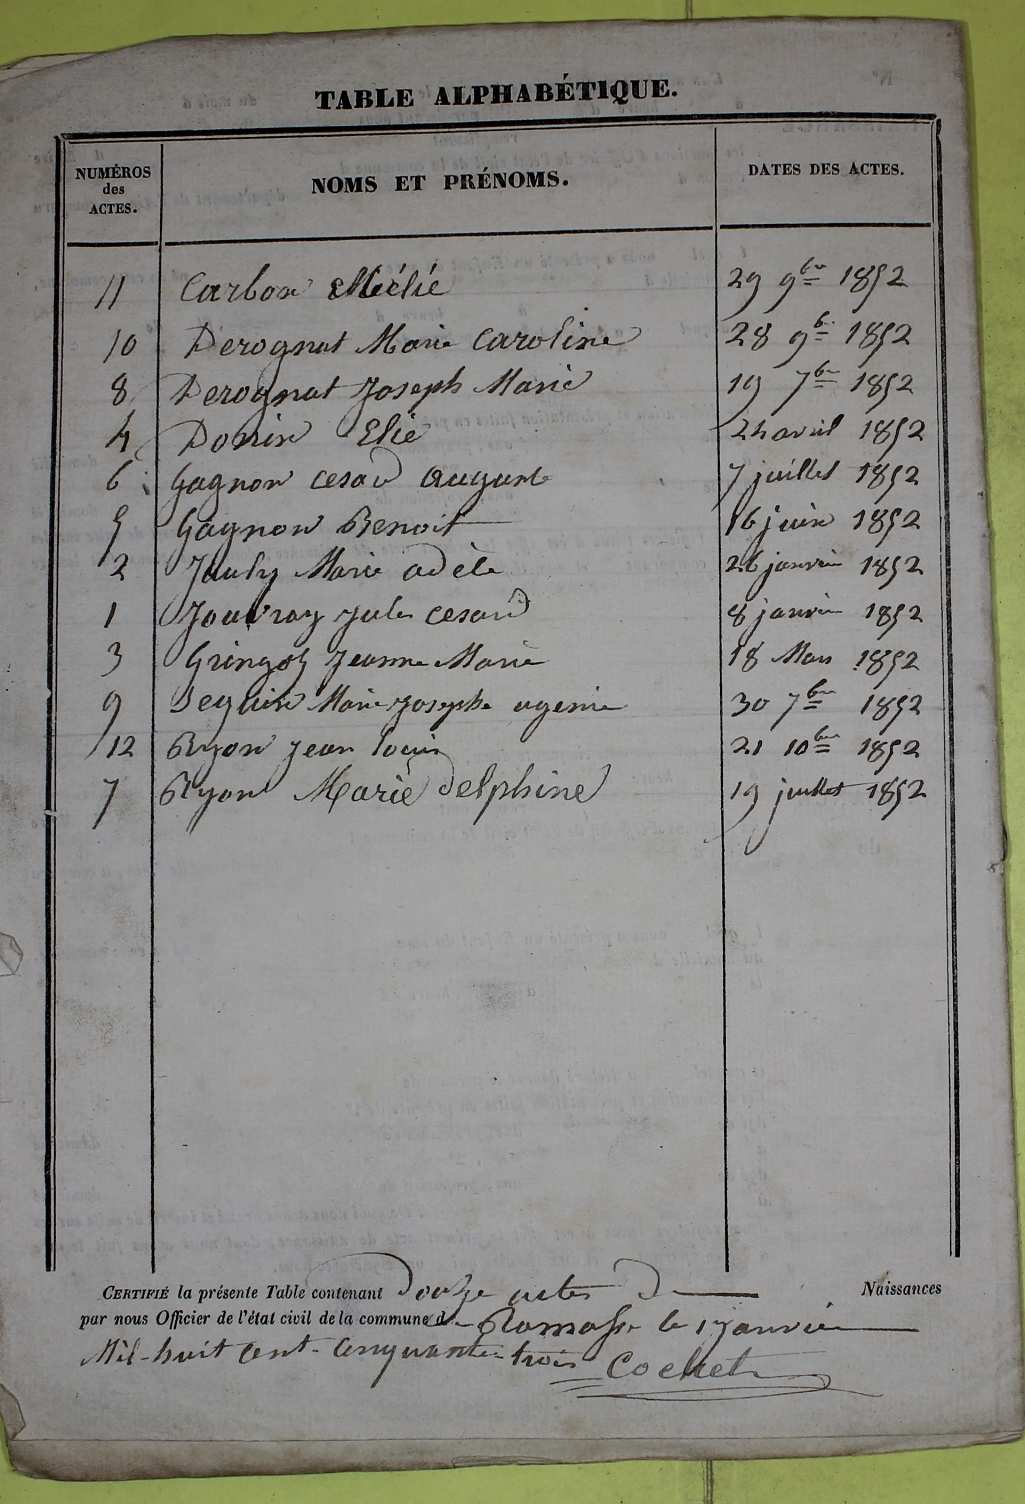 TABLE ALPHABÉTIQUE.
NUMÉROS des ACTES. NOMS ET PRÉNOMS. DATES DES ACTES.
11 Carbon Mélie 29 9bre 1852
10 Derognat Marie Caroline 28 9b. 1852
8 Derognat Joseph Marie 19 7bre 1852
4 Donin Elie 24 avril 1852
6 Gagnon Cesard Auguste 7 juillet 1852
5 Gagnon Benoit 16 juin 1852
2 Marie adèle 26 janvier 1852
1 Jouvray Jules Cesard 8 janvier 1852
3 Gringoz Jeanne Marie 18 Mars 1852
9 Seguin Marie Josephe ugenie 30 7bre 1852
12 Ryon Jean Louis 21 10bre 1852
7 Ryon Marie Delphine 19 juillet 1852
CERTIFIÉ la présente Table contenant Douze actes De Naissances
par nous Officier de l'état civil de la commune de Ramasse le 1 Janvier
Mil-huit cent-Cinquante-trois Cochet